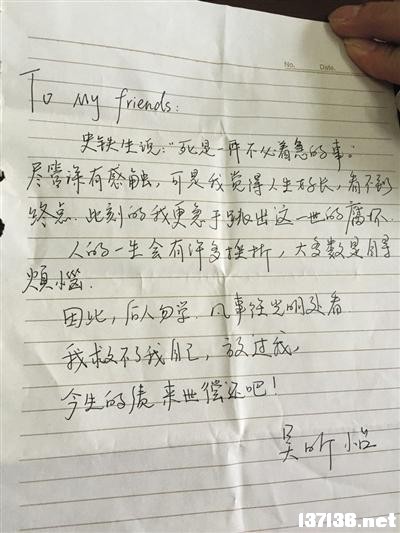 No.
Date.
To My friends:
史铁生说:“死是一件不必着急的事。
尽管深有感触,可是我觉得人生好长,看不到
终点.此刻的我更急于跳出这一世的腐坏.
人的一生会有许多挫折,大多数是自寻
烦恼.
因此,后人勿学.凡事往光明处看.
我救不了我自己,放过我,
今生的债来世偿还吧!
吴昕怡
137138.net